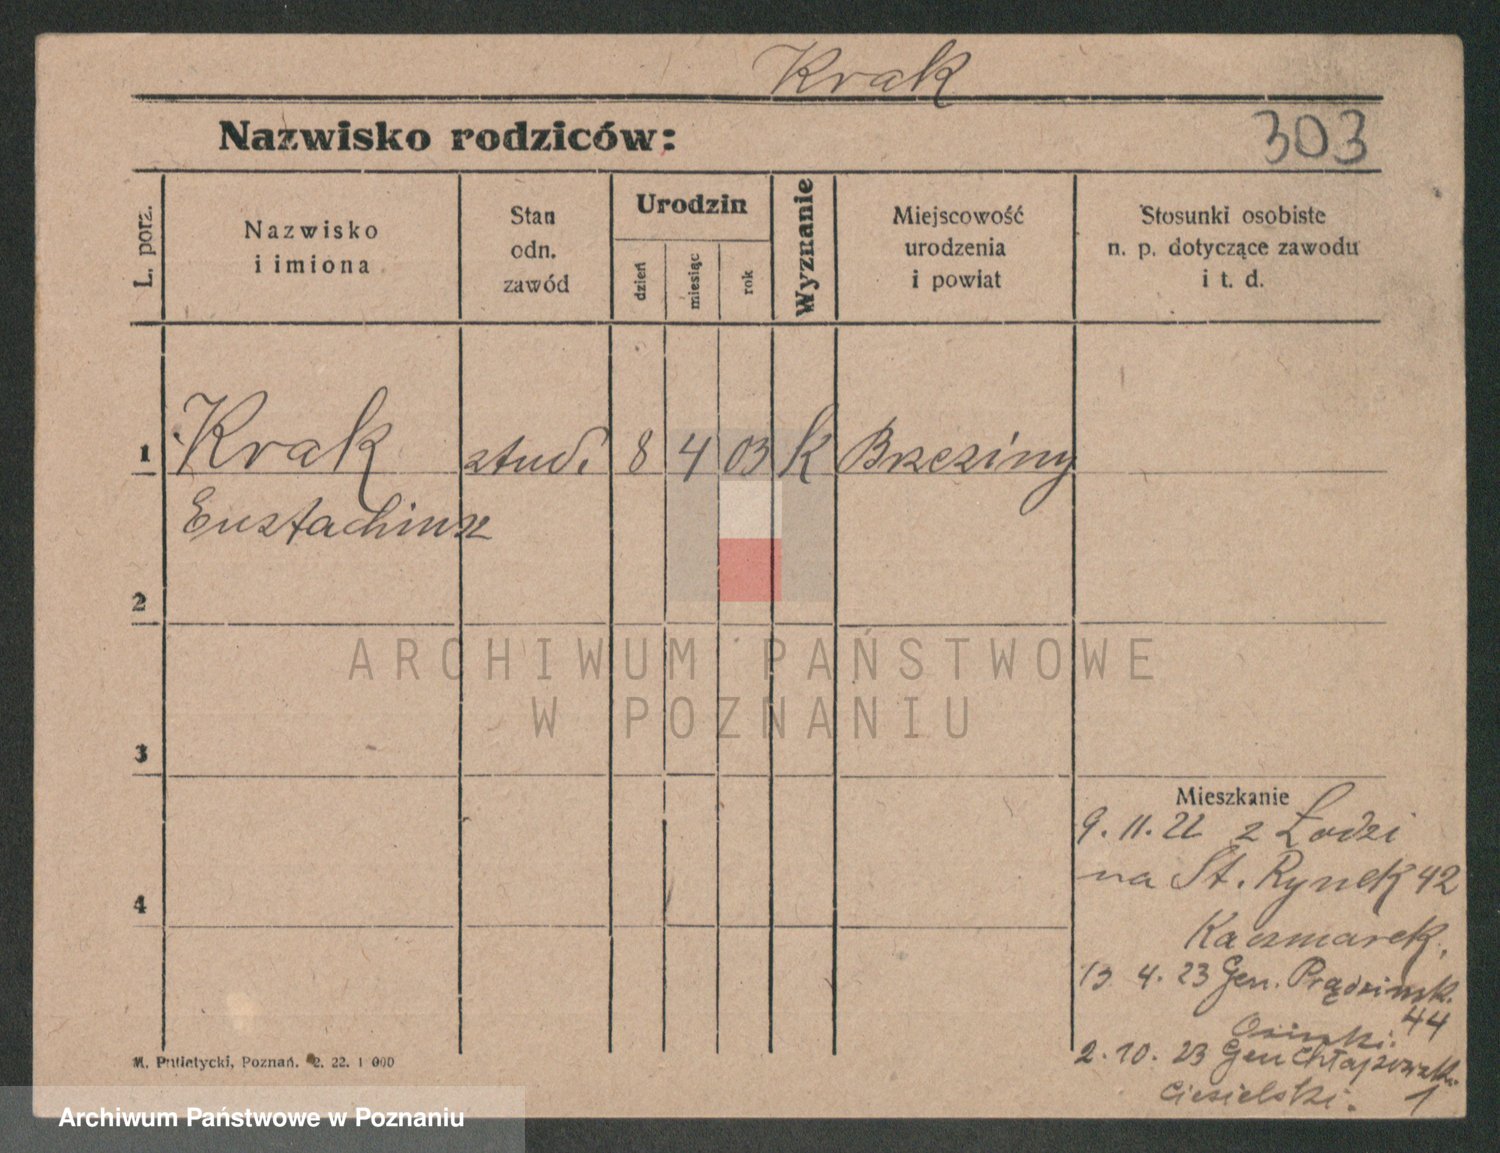 Krak
Nazwisko rodziców:
303
L. porz.
Nazwisko
i imiona
Stan
odn.
zawód
Urodzin
dzień
miesiąc
rok
Wyznanie
Miejscowość
urodzenia
i powiat
Stosunki osobiste
n. p. dotyczące zawodu
i t. d.
1 Krak stud. 8 4 03 k Brzeziny
Eustachiusz
2
3
4
Mieszkanie
9. 11. 22 z Łodzi
na St. Rynek 42
Kaczmarek.
13 4. 23 Gen. Prądzinsk.
44
Osinski.
2. 10. 23 Gen Chłapowsk.
Ciesielski. 1
M. Putiatycki, Poznań. 2. 22. 1 000
ARCHIWUM PAŃSTWOWE
W POZNANIU
Archiwum Państwowe w Poznaniu